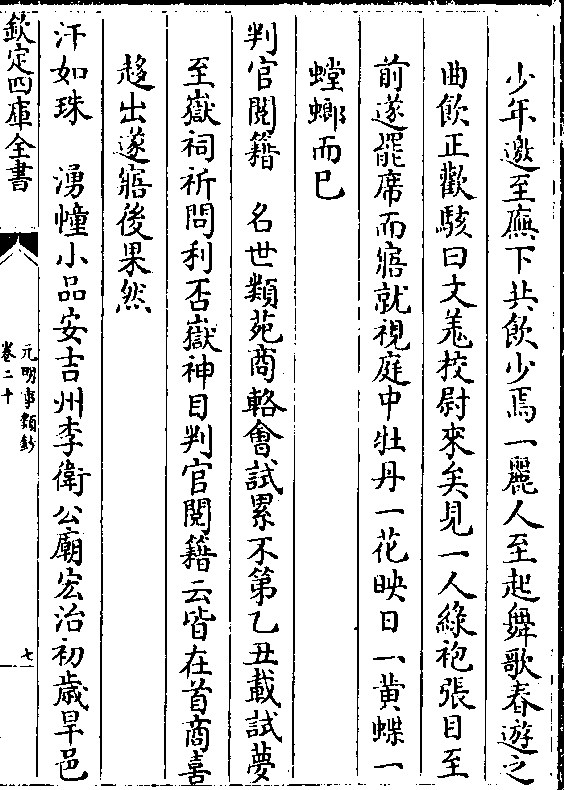 少年邀至廡下共飲少焉一麗人至起舞歌春遊之
曲飲正歡駭曰文羗校尉來矣見一人綠袍張目至
前遂罷席而寤就視庭中牡丹一花映日一黄蝶一
螳螂而已
判官閱籍　名世類苑商輅會試累不第乙丑載試夢
至嶽祠祈問利否嶽神目判官閱籍云皆在首商喜
趍出遂寤後果然
汗如珠　湧幢小品安吉州李衛公廟宏治初歳旱邑
欽定四庫全書
元明事類鈔
卷二十
七